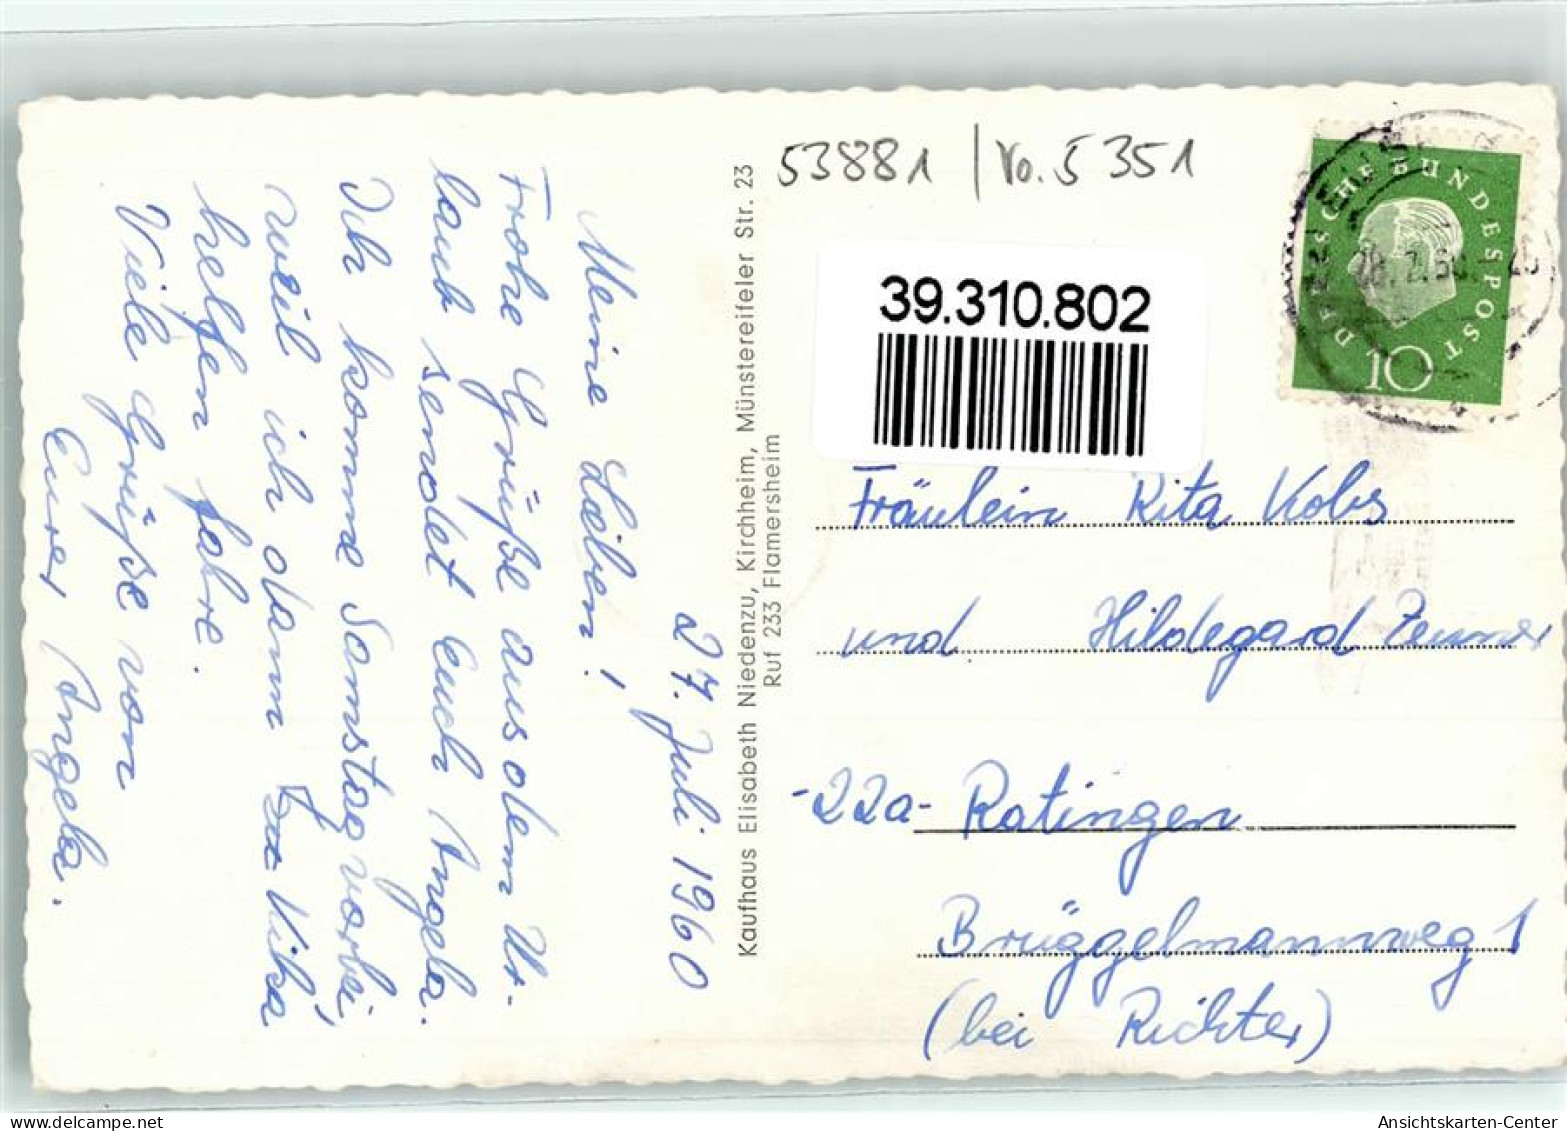 53881 / Vo. 5 351
39.310.802
DEUTSCHE BUNDESPOST
10
27. Juli 1960
Meine Lieben!
Frohe Grüße aus dem Ur-
laub sendet Euch Angela.
Ich komme Samstag vorbei,
weil ich dann zu Vika
helfen fahre.
Viele Grüße von
Eurer Angela.
Kaufhaus Elisabeth Niedenzu, Kirchheim, Münstereifeler Str. 23
Ruf 233 Flamersheim
Fräulein Rita Kobs
und Hildegard
-22a- Ratingen
Brüggelmannweg 1
(bei Richter)
Ansichtskarten-Center